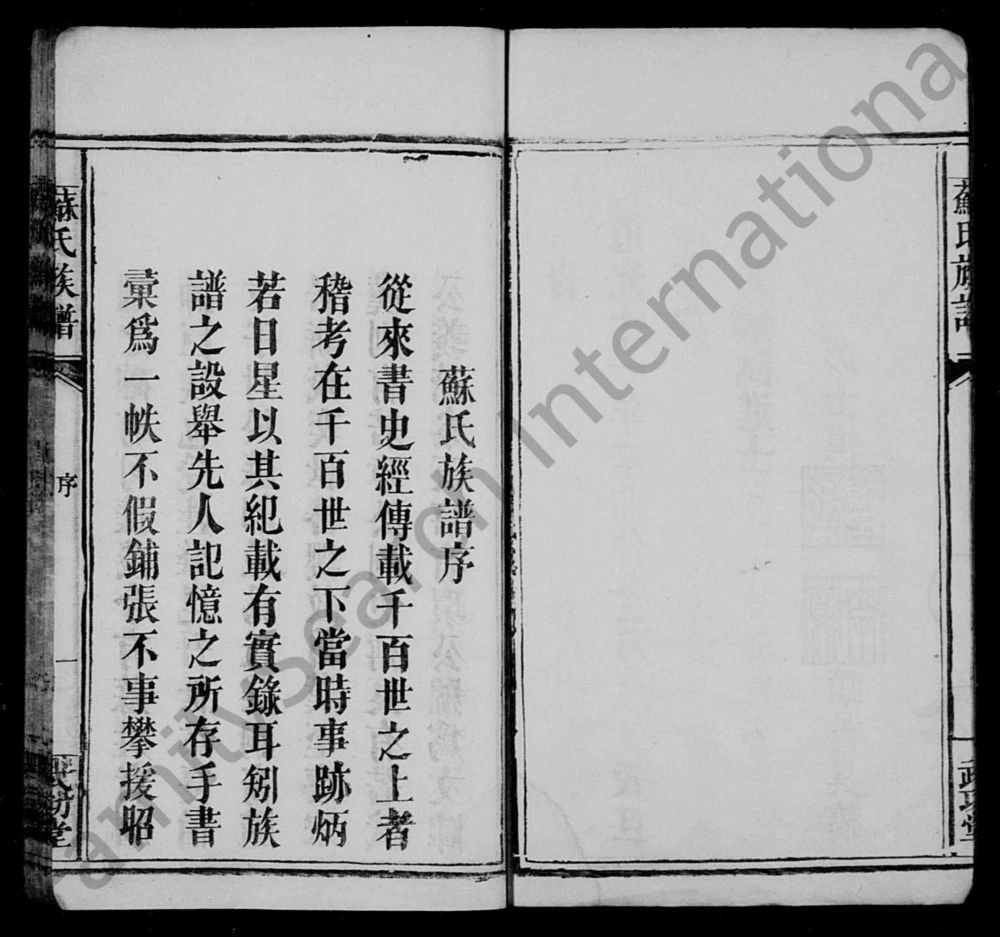 蘇氏族譜
蘇氏族譜序
從來書史經傳載千百世之上者
稽考在千百世之下當時事跡炳
若日星以其紀載有實錄耳矧族
譜之設舉先人記憶之所存手書
彚爲一帙不假鋪張不事攀援昭
蘇氏族譜
序
一
堂
FamilySearch International